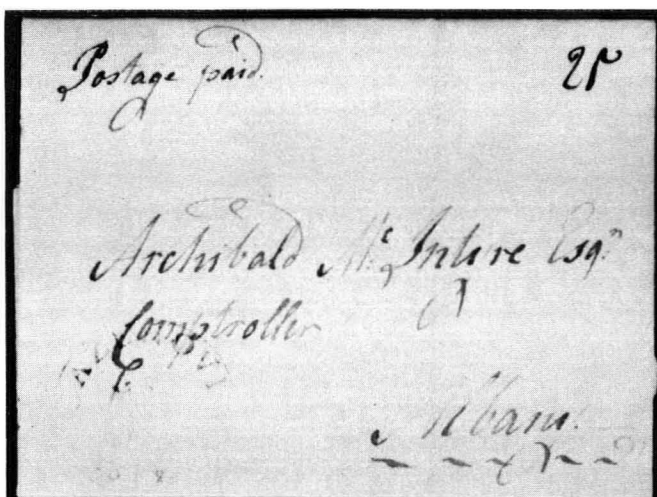 Postage paid. 25
Archibald Mc. Intire Esqr.
Comptroller
Albany